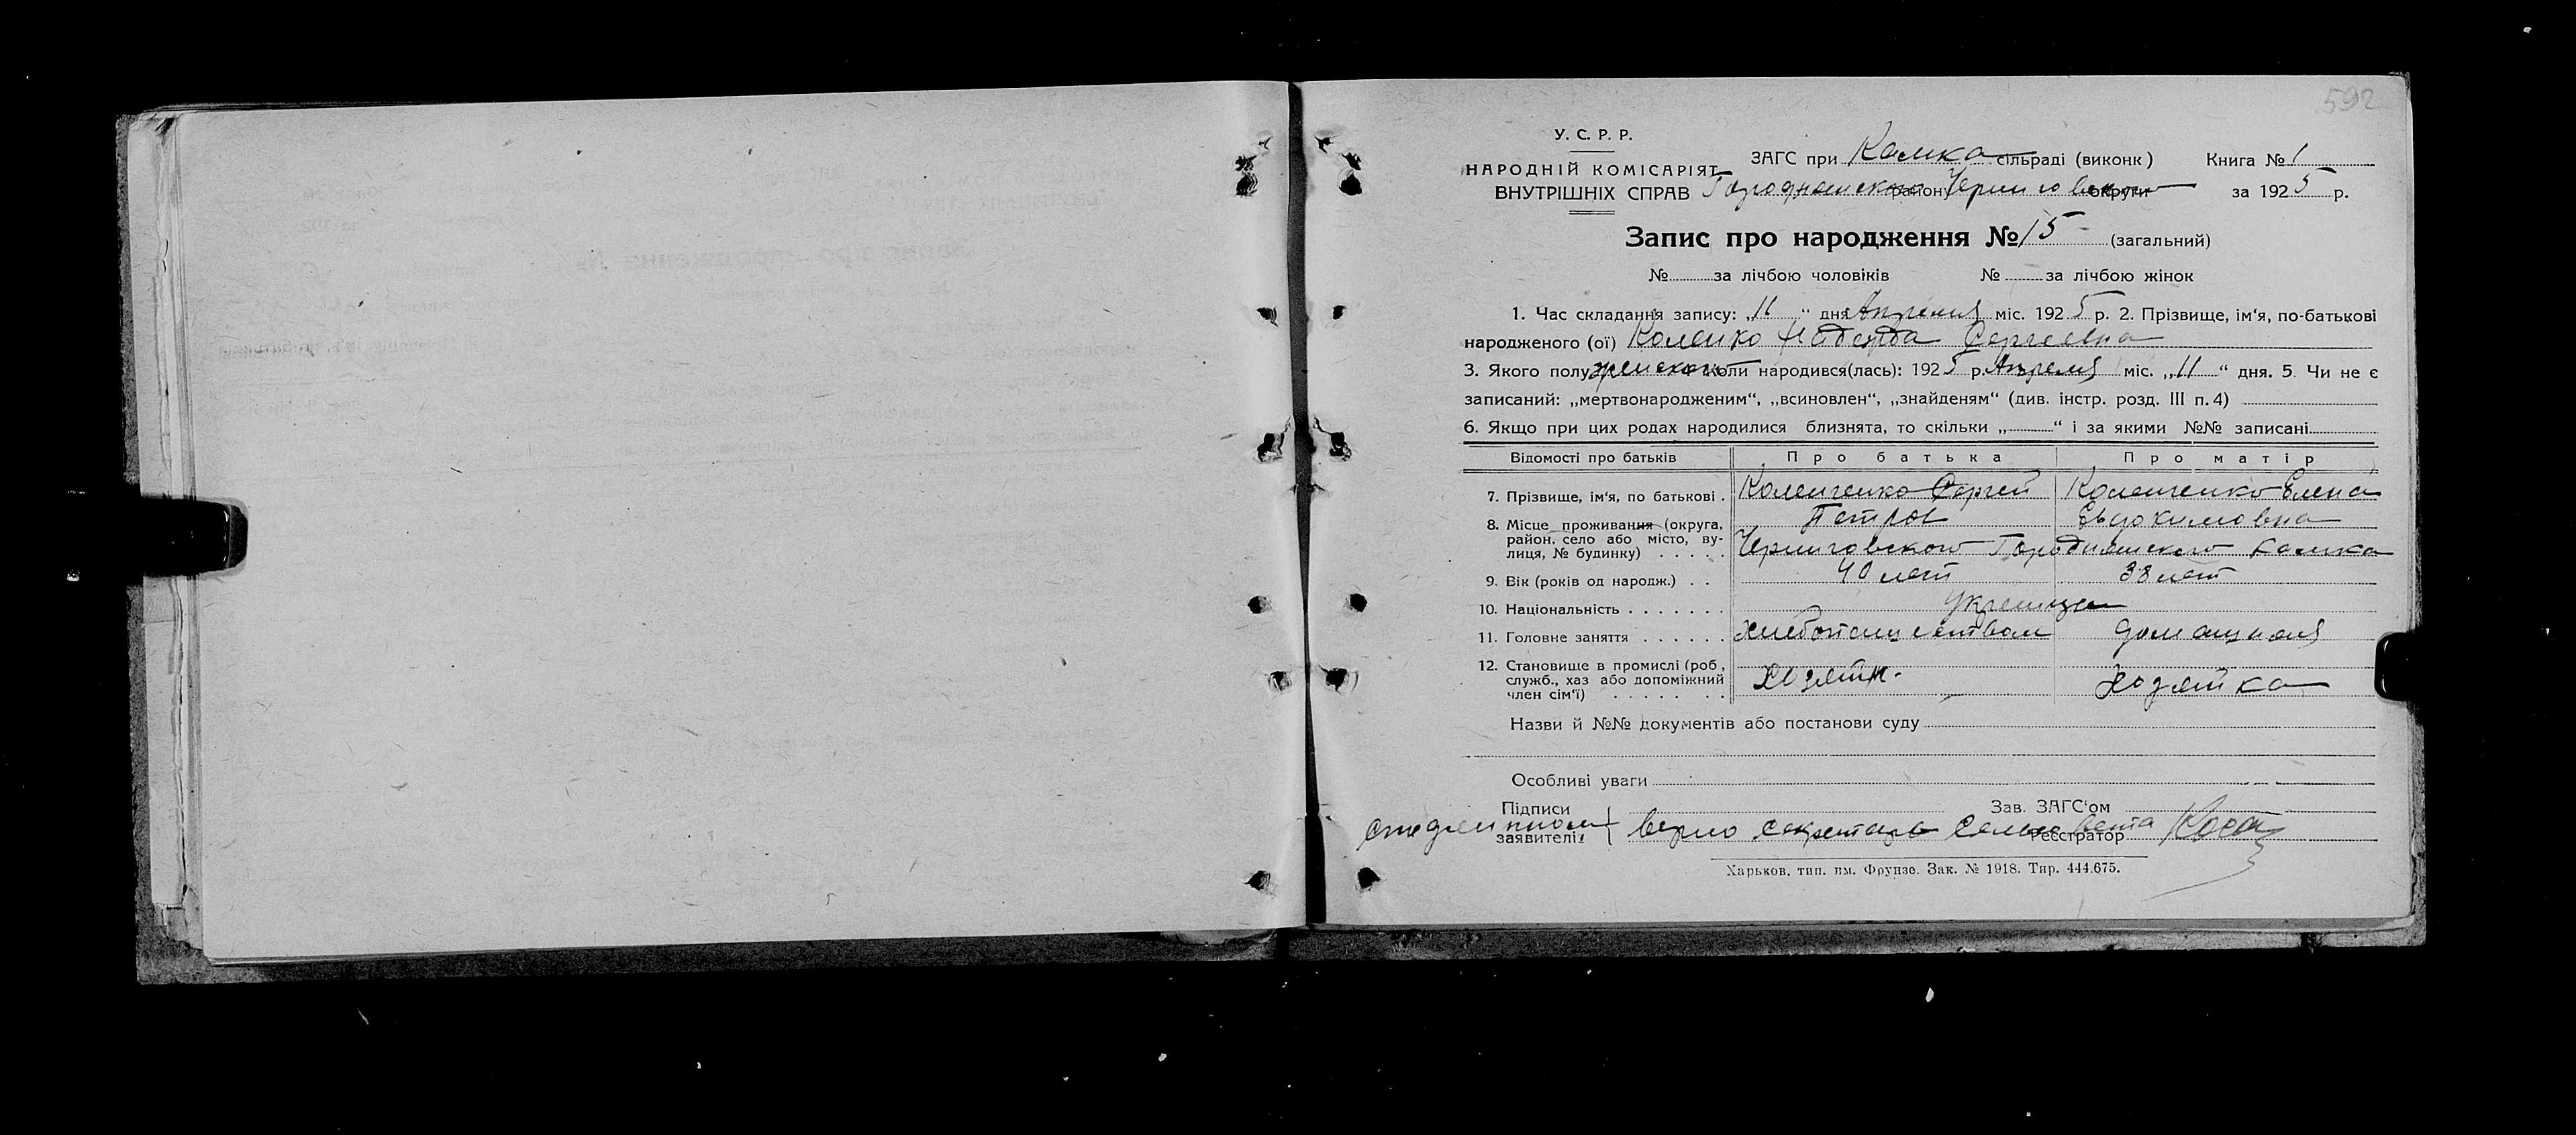 592
У. С. Р. Р.
НАРОДНІЙ КОМІСАРІЯТ
ВНУТРІШНІХ СПРАВ
ЗАГС при Камка сільраді (виконк) Книга № 1
Городнянского району Черниговского округи за 1925 р.
Запис про народження № 15 (загальний)
№ за лічбою чоловіків № за лічбою жінок
1. Час складання запису: „11“ дня Апреля міс. 1925 р. 2. Прізвище, ім'я, по-батькові
народженого (ої) Надежда Сергеевна
3. Якого полу женского коли народився(лась): 1925 р. Апреля міс. „11“ дня. 5. Чи не є
записаний: „мертвонародженим“, „всиновлен“, „знайденям“ (див. інстр. розд. III п. 4)
6. Якщо при цих родах народилися близнята, то скільки „ “ і за якими №№ записані
Відомості про батьків Про батька Про матір
7. Прізвище, ім'я, по батькові . Сергей Елена
Петров Евдокимовна
8. Місце проживання (округа, район, село або місто, вулиця, № будинку) . . . . . Черниговского Городнянского Камка
9. Вік (років од народж.) . . 40 лет 38 лет
10. Національність . . . . . . . Украинцы
11. Головне заняття . . . . . . Хлебопашеством домашная
12. Становище в промислі (роб, служб., хаз або допоміжний член сім'ї) . . . . . . . Хозяин. Хозяйка
Назви й №№ документів або постанови суду
Особливі уваги
Підписи Зав. ЗАГС'ом
заявителів верно секретарь Сельсовета Реєстратор
Харьков, тип. им. Фрунзе. Зак. № 1918. Тир. 444.675.